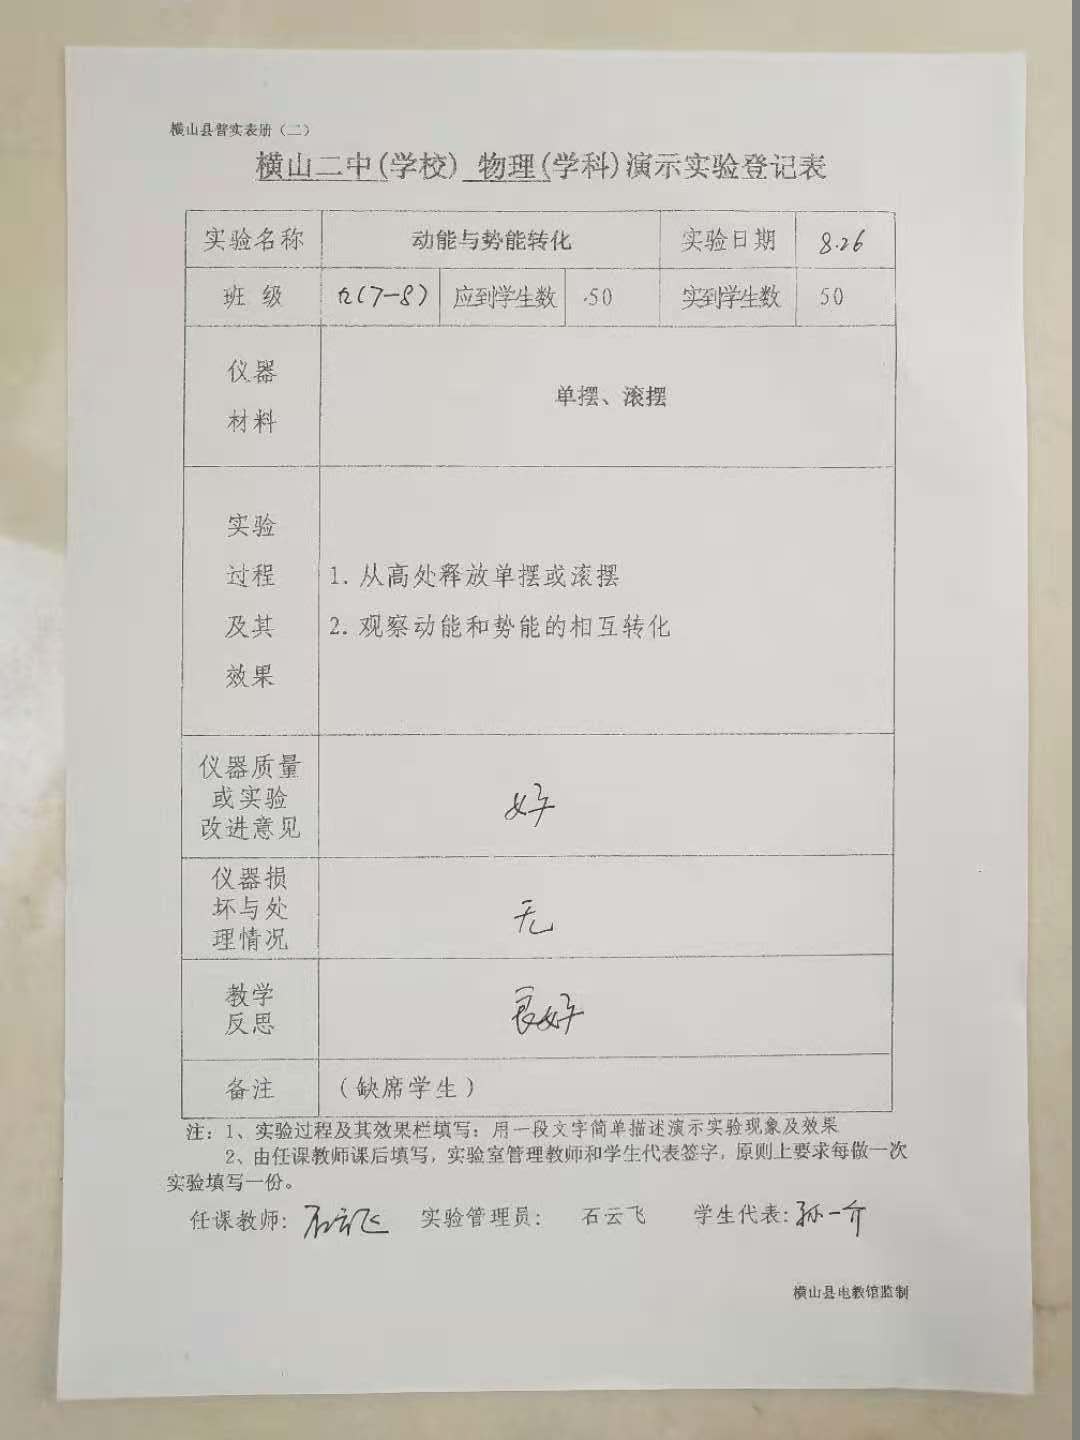 横山县普实表册（二）
横山二中(学校) 物理(学科)演示实验登记表
实验名称 动能与势能转化 实验日期 8.26
班 级 九(7-8) 应到学生数 50 实到学生数 50
仪器
材料
单摆、滚摆
实验
过程
及其
效果
1. 从高处释放单摆或滚摆
2. 观察动能和势能的相互转化
仪器质量
或实验
改进意见
好
仪器损
坏与处
理情况
无
教学
反思
良好
备注 （缺席学生）
注：1、实验过程及其效果栏填写：用一段文字简单描述演示实验现象及效果
2、由任课教师课后填写，实验室管理教师和学生代表签字，原则上要求每做一次
实验填写一份。
任课教师: 石云飞 实验管理员: 石云飞 学生代表: 孙一介
横山县电教馆监制